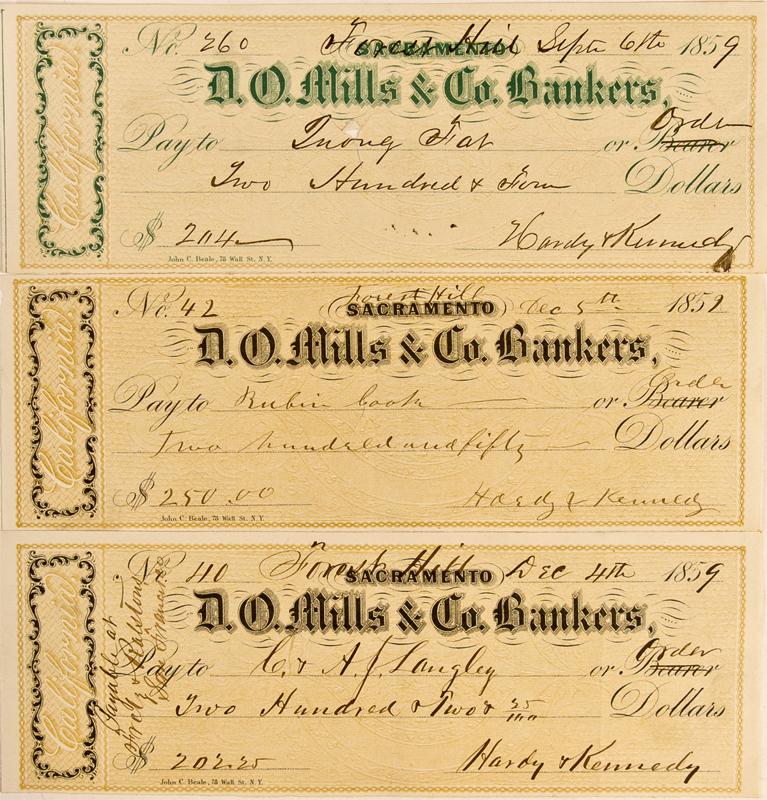 No. 260 Forest Hill SACRAMENTO Sept 6th 1859
D. O. Mills & Co. Bankers,
Order
Pay to Quong Fat or Bearer
Two Hundred & Four Dollars
$ 204 Hardy & Kennedy
John C. Beale, 78 Wall St. N.Y.
California
Forest Hill
No. 42 SACRAMENTO Dec 5th 1859
D. O. Mills & Co. Bankers,
Order
Pay to Rubin Cook or Bearer
Two hundred and fifty Dollars
$ 250.00 Hardy & Kennedy
John C. Beale, 78 Wall St. N.Y.
California
No. 40 Forest Hill SACRAMENTO Dec 4th 1859
D. O. Mills & Co. Bankers,
Order
Pay to C. & A. J. Langley or Bearer
Two Hundred & Two & 25/100 Dollars
$ 202.25 Hardy & Kennedy
John C. Beale, 78 Wall St. N.Y.
California
Payable at
San Francisco